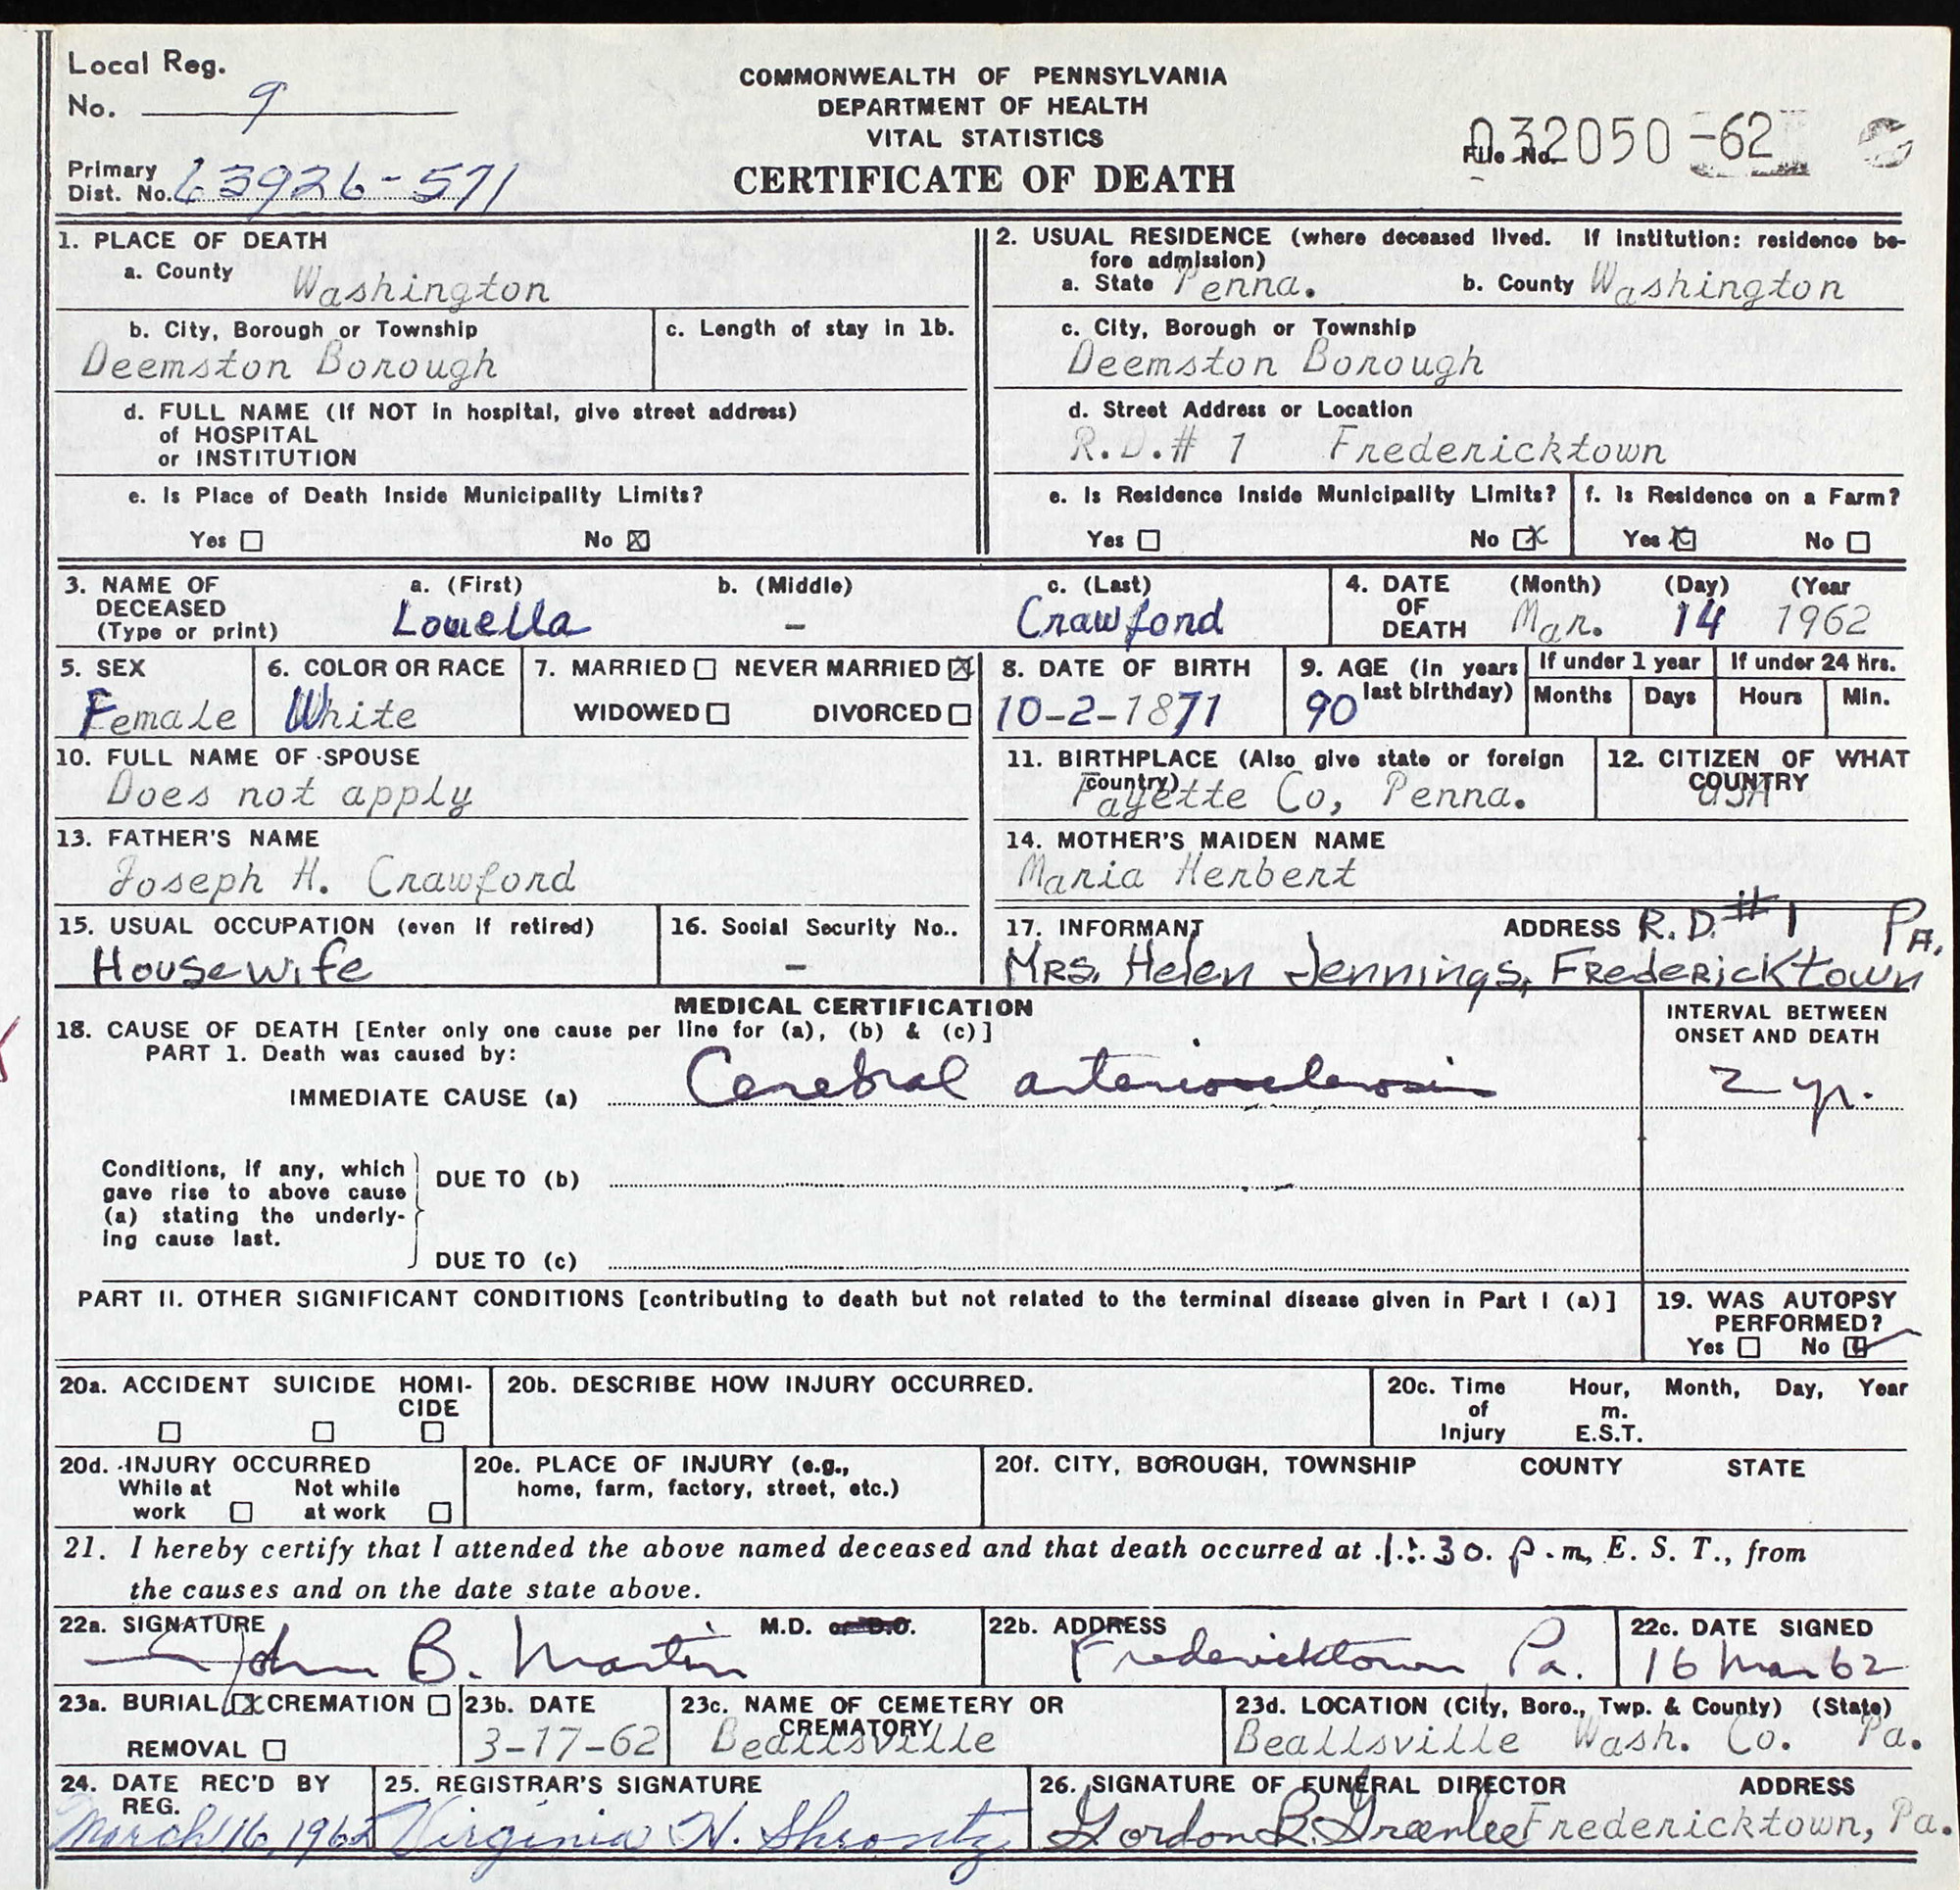 Local Reg.
No. 9
COMMONWEALTH OF PENNSYLVANIA
DEPARTMENT OF HEALTH
VITAL STATISTICS
CERTIFICATE OF DEATH
File No. 032050-62
Primary
Dist. No. 63926-571
1. PLACE OF DEATH
a. County Washington
b. City, Borough or Township
Deemston Borough
c. Length of stay in 1b.
d. FULL NAME (If NOT in hospital, give street address)
of HOSPITAL
or INSTITUTION
e. Is Place of Death Inside Municipality Limits?
Yes ☐ No ☒
2. USUAL RESIDENCE (where deceased lived. If institution: residence be-
fore admission)
a. State Penna. b. County Washington
c. City, Borough or Township
Deemston Borough
d. Street Address or Location
R.D.# 1 Fredericktown
e. Is Residence Inside Municipality Limits?
Yes ☐ No ☒
f. Is Residence on a Farm?
Yes ☒ No ☐
3. NAME OF DECEASED (Type or print)
a. (First) b. (Middle) c. (Last)
Louella - Crawford
4. DATE OF DEATH (Month) (Day) (Year
Mar. 14 1962
5. SEX
Female
6. COLOR OR RACE
White
7. MARRIED ☐ NEVER MARRIED ☒
WIDOWED ☐ DIVORCED ☐
8. DATE OF BIRTH
10-2-1871
9. AGE (in years last birthday)
90
If under 1 year
Months Days
If under 24 Hrs.
Hours Min.
10. FULL NAME OF SPOUSE
Does not apply
11. BIRTHPLACE (Also give state or foreign country)
Fayette Co, Penna.
12. CITIZEN OF WHAT COUNTRY
USA
13. FATHER'S NAME
Joseph H. Crawford
14. MOTHER'S MAIDEN NAME
Maria Herbert
15. USUAL OCCUPATION (even if retired)
Housewife
16. Social Security No..
-
17. INFORMANT ADDRESS R.D.#1 PA.
MRS. Helen Jennings, Fredericktown
MEDICAL CERTIFICATION
18. CAUSE OF DEATH [Enter only one cause per line for (a), (b) & (c)]
PART I. Death was caused by:
IMMEDIATE CAUSE (a) Cerebral arteriosclerosis
INTERVAL BETWEEN
ONSET AND DEATH
2 yr.
Conditions, if any, which
gave rise to above cause
(a) stating the underly-
ing cause last.
DUE TO (b)
DUE TO (c)
PART II. OTHER SIGNIFICANT CONDITIONS [contributing to death but not related to the terminal disease given in Part I (a)]
19. WAS AUTOPSY
PERFORMED?
Yes ☐ No ☑
20a. ACCIDENT SUICIDE HOMI-
CIDE
☐ ☐ ☐
20b. DESCRIBE HOW INJURY OCCURRED.
20c. Time of Injury Hour, Month, Day, Year
m.
E.S.T.
20d. INJURY OCCURRED
While at work ☐ Not while at work ☐
20e. PLACE OF INJURY (e.g.,
home, farm, factory, street, etc.)
20f. CITY, BOROUGH, TOWNSHIP COUNTY STATE
21. I hereby certify that I attended the above named deceased and that death occurred at 1:30 p.m, E. S. T., from
the causes and on the date state above.
22a. SIGNATURE M.D. or D.O.
John B. Martin
22b. ADDRESS
Fredericktown Pa.
22c. DATE SIGNED
16 Mar 62
23a. BURIAL ☒ CREMATION ☐
REMOVAL ☐
23b. DATE
3-17-62
23c. NAME OF CEMETERY OR CREMATORY
Beallsville
23d. LOCATION (City, Boro., Twp. & County) (State)
Beallsville Wash. Co. Pa.
24. DATE REC'D BY REG.
March 16, 1962
25. REGISTRAR'S SIGNATURE
Virginia H. Shrontz
26. SIGNATURE OF FUNERAL DIRECTOR ADDRESS
Gordon R. Greenlee Fredericktown, Pa.